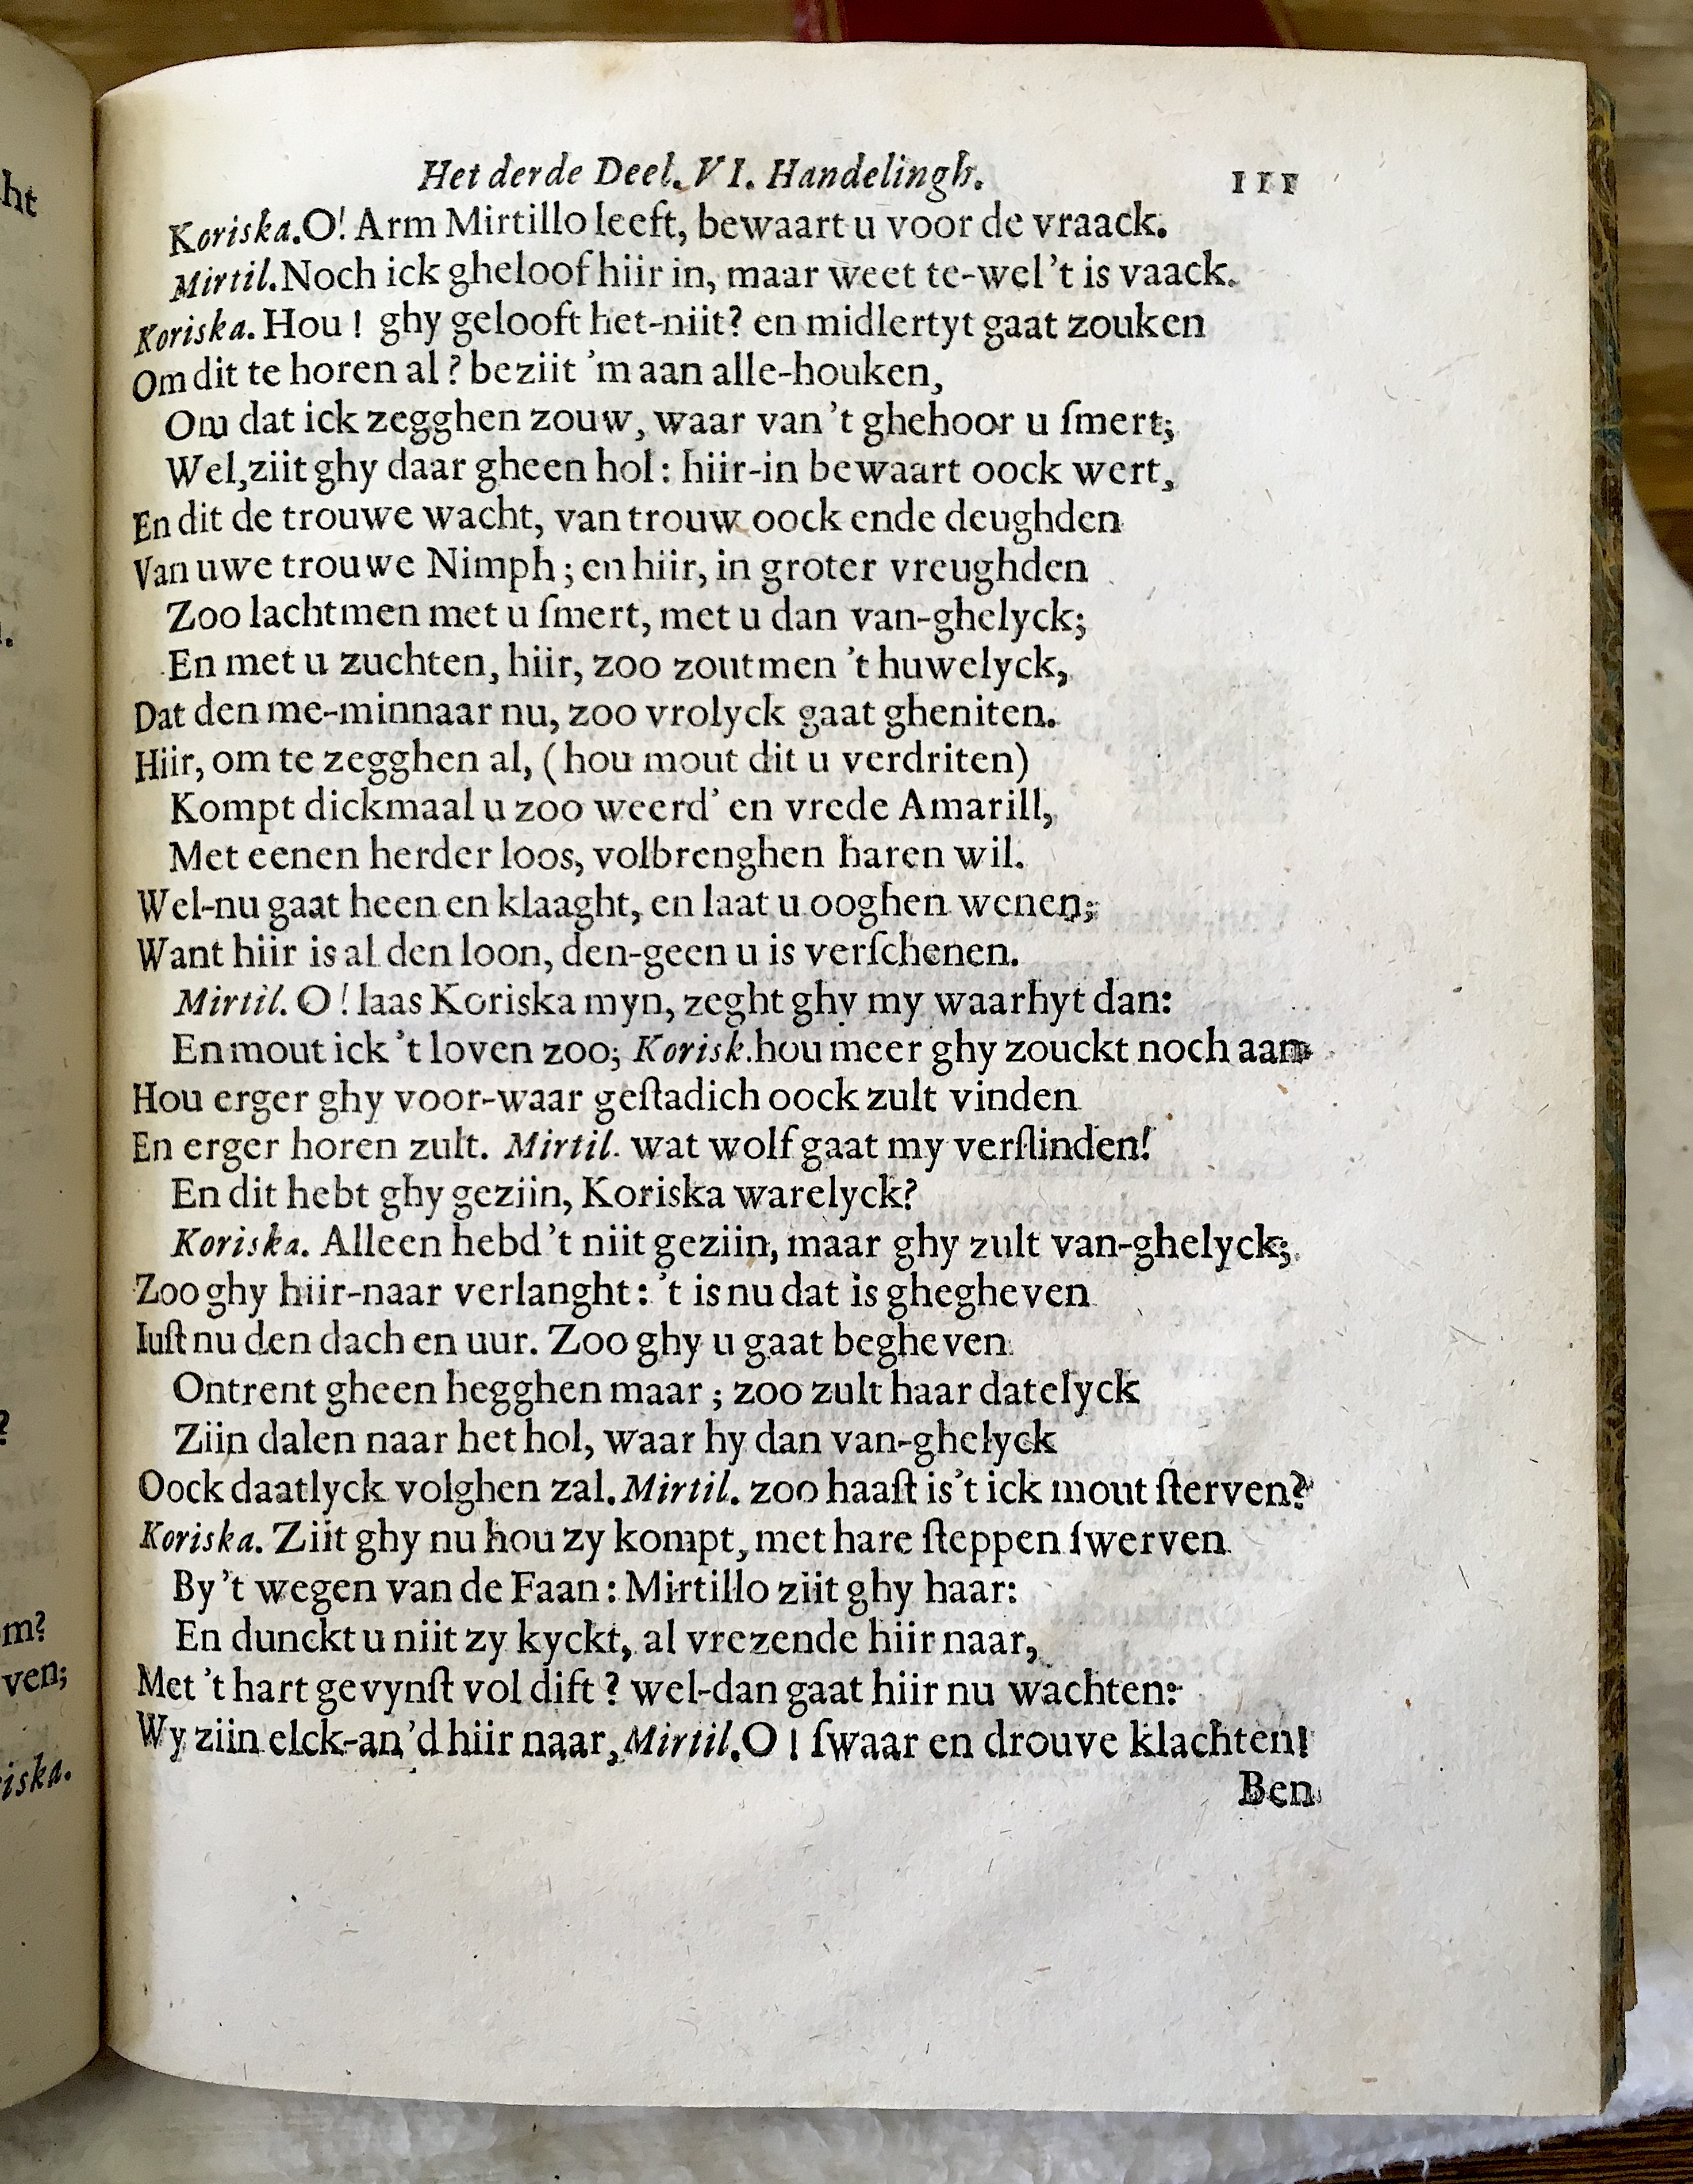 Het derde Deel. VI. Handelingh. 111
Koriska. O! Arm Mirtillo leeft, bewaart u voor de vraack.
Mirtil. Noch ick gheloof hiir in, maar weet te-wel 't is vaack.
Koriska. Hou! ghy gelooft het-niit? en midlertyt gaat zouken
Om dit te horen al? beziit 'm aan alle-houken,
Om dat ick zegghen zouw, waar van 't ghehoor u ſmert;
Wel, ziit ghy daar gheen hol: hiir-in bewaart oock wert,
En dit de trouwe wacht, van trouw oock ende deughden
Van uwe trouwe Nimph; en hiir, in groter vreughden
Zoo lachtmen met u ſmert, met u dan van-ghelyck;
En met u zuchten, hiir, zoo zoutmen 't huwelyck,
Dat den me-minnaar nu, zoo vrolyck gaat gheniten.
Hiir, om te zegghen al, (hou mout dit u verdriten)
Kompt dickmaal u zoo weerd' en vrede Amarill,
Met eenen herder loos, volbrenghen haren wil.
Wel-nu gaat heen en klaaght, en laat u ooghen wenen;
Want hiir is al den loon, den-geen u is verſchenen.
Mirtil. O! laas Koriska myn, zeght ghy my waarhyt dan:
En mout ick 't loven zoo; Korisk. hou meer ghy zouckt noch aan
Hou erger ghy voor-waar geſtadich oock zult vinden
En erger horen zult. Mirtil. wat wolf gaat my verſlinden!
En dit hebt ghy geziin, Koriska warelyck?
Koriska. Alleen hebd 't niit geziin, maar ghy zult van-ghelyck;
Zoo ghy hiir-naar verlanght: 't is nu dat is ghegheven
Iuſt nu den dach en uur. Zoo ghy u gaat begheven
Ontrent gheen hegghen maar; zoo zult haar datelyck
Ziin dalen naar het hol, waar hy dan van-ghelyck
Oock daatlyck volghen zal. Mirtil. zoo haaſt is't ick mout ſterven?
Koriska. Ziit ghy nu hou zy kompt, met hare ſteppen ſwerven
By 't wegen van de Faan: Mirtillo ziit ghy haar:
En dunckt u niit zy kyckt, al vrezende hiir naar,
Met 't hart gevynſt vol dift? wel-dan gaat hiir nu wachten:
Wy ziin elck-an'd hiir naar, Mirtil. O! ſwaar en drouve klachten!
Ben
ht
m?
ven;
iska.